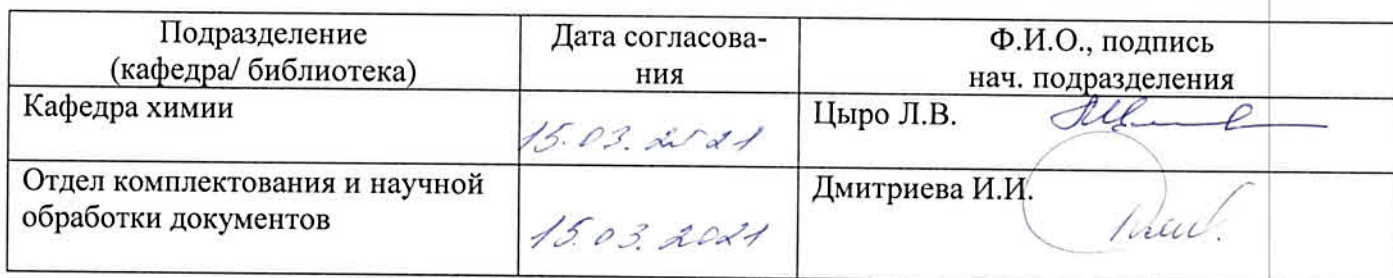 Подразделение
(кафедра/ библиотека)
Дата согласова-
ния
Ф.И.О., подпись
нач. подразделения
Кафедра химии
15.03.2021
Цыро Л.В.
Отдел комплектования и научной
обработки документов
15.03.2021
Дмитриева И.И.